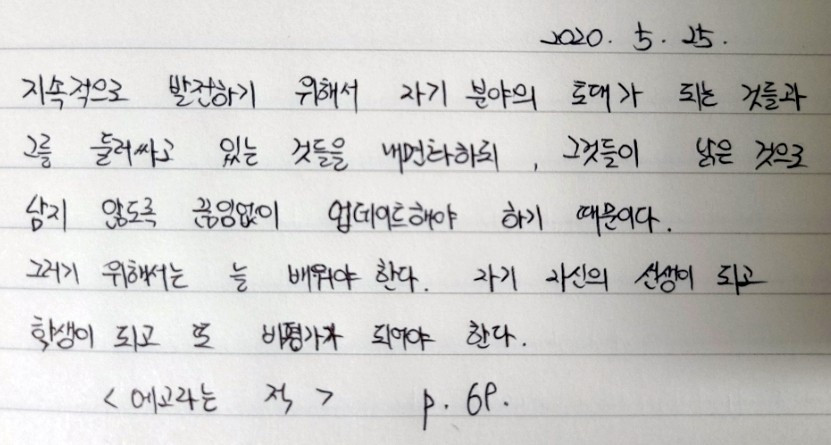 2020. 5. 25.
지속적으로 발전하기 위해서 자기 분야의 토대가 되는 것들과
그를 둘러싸고 있는 것들을 내면화하되, 그것들이 낡은 것으로
남지 않도록 끊임없이 업데이트해야 하기 때문이다.
그러기 위해서는 늘 배워야 한다. 자기 자신의 선생이 되고
학생이 되고 또 비평가가 되어야 한다.
<에고라는 적> p. 69.